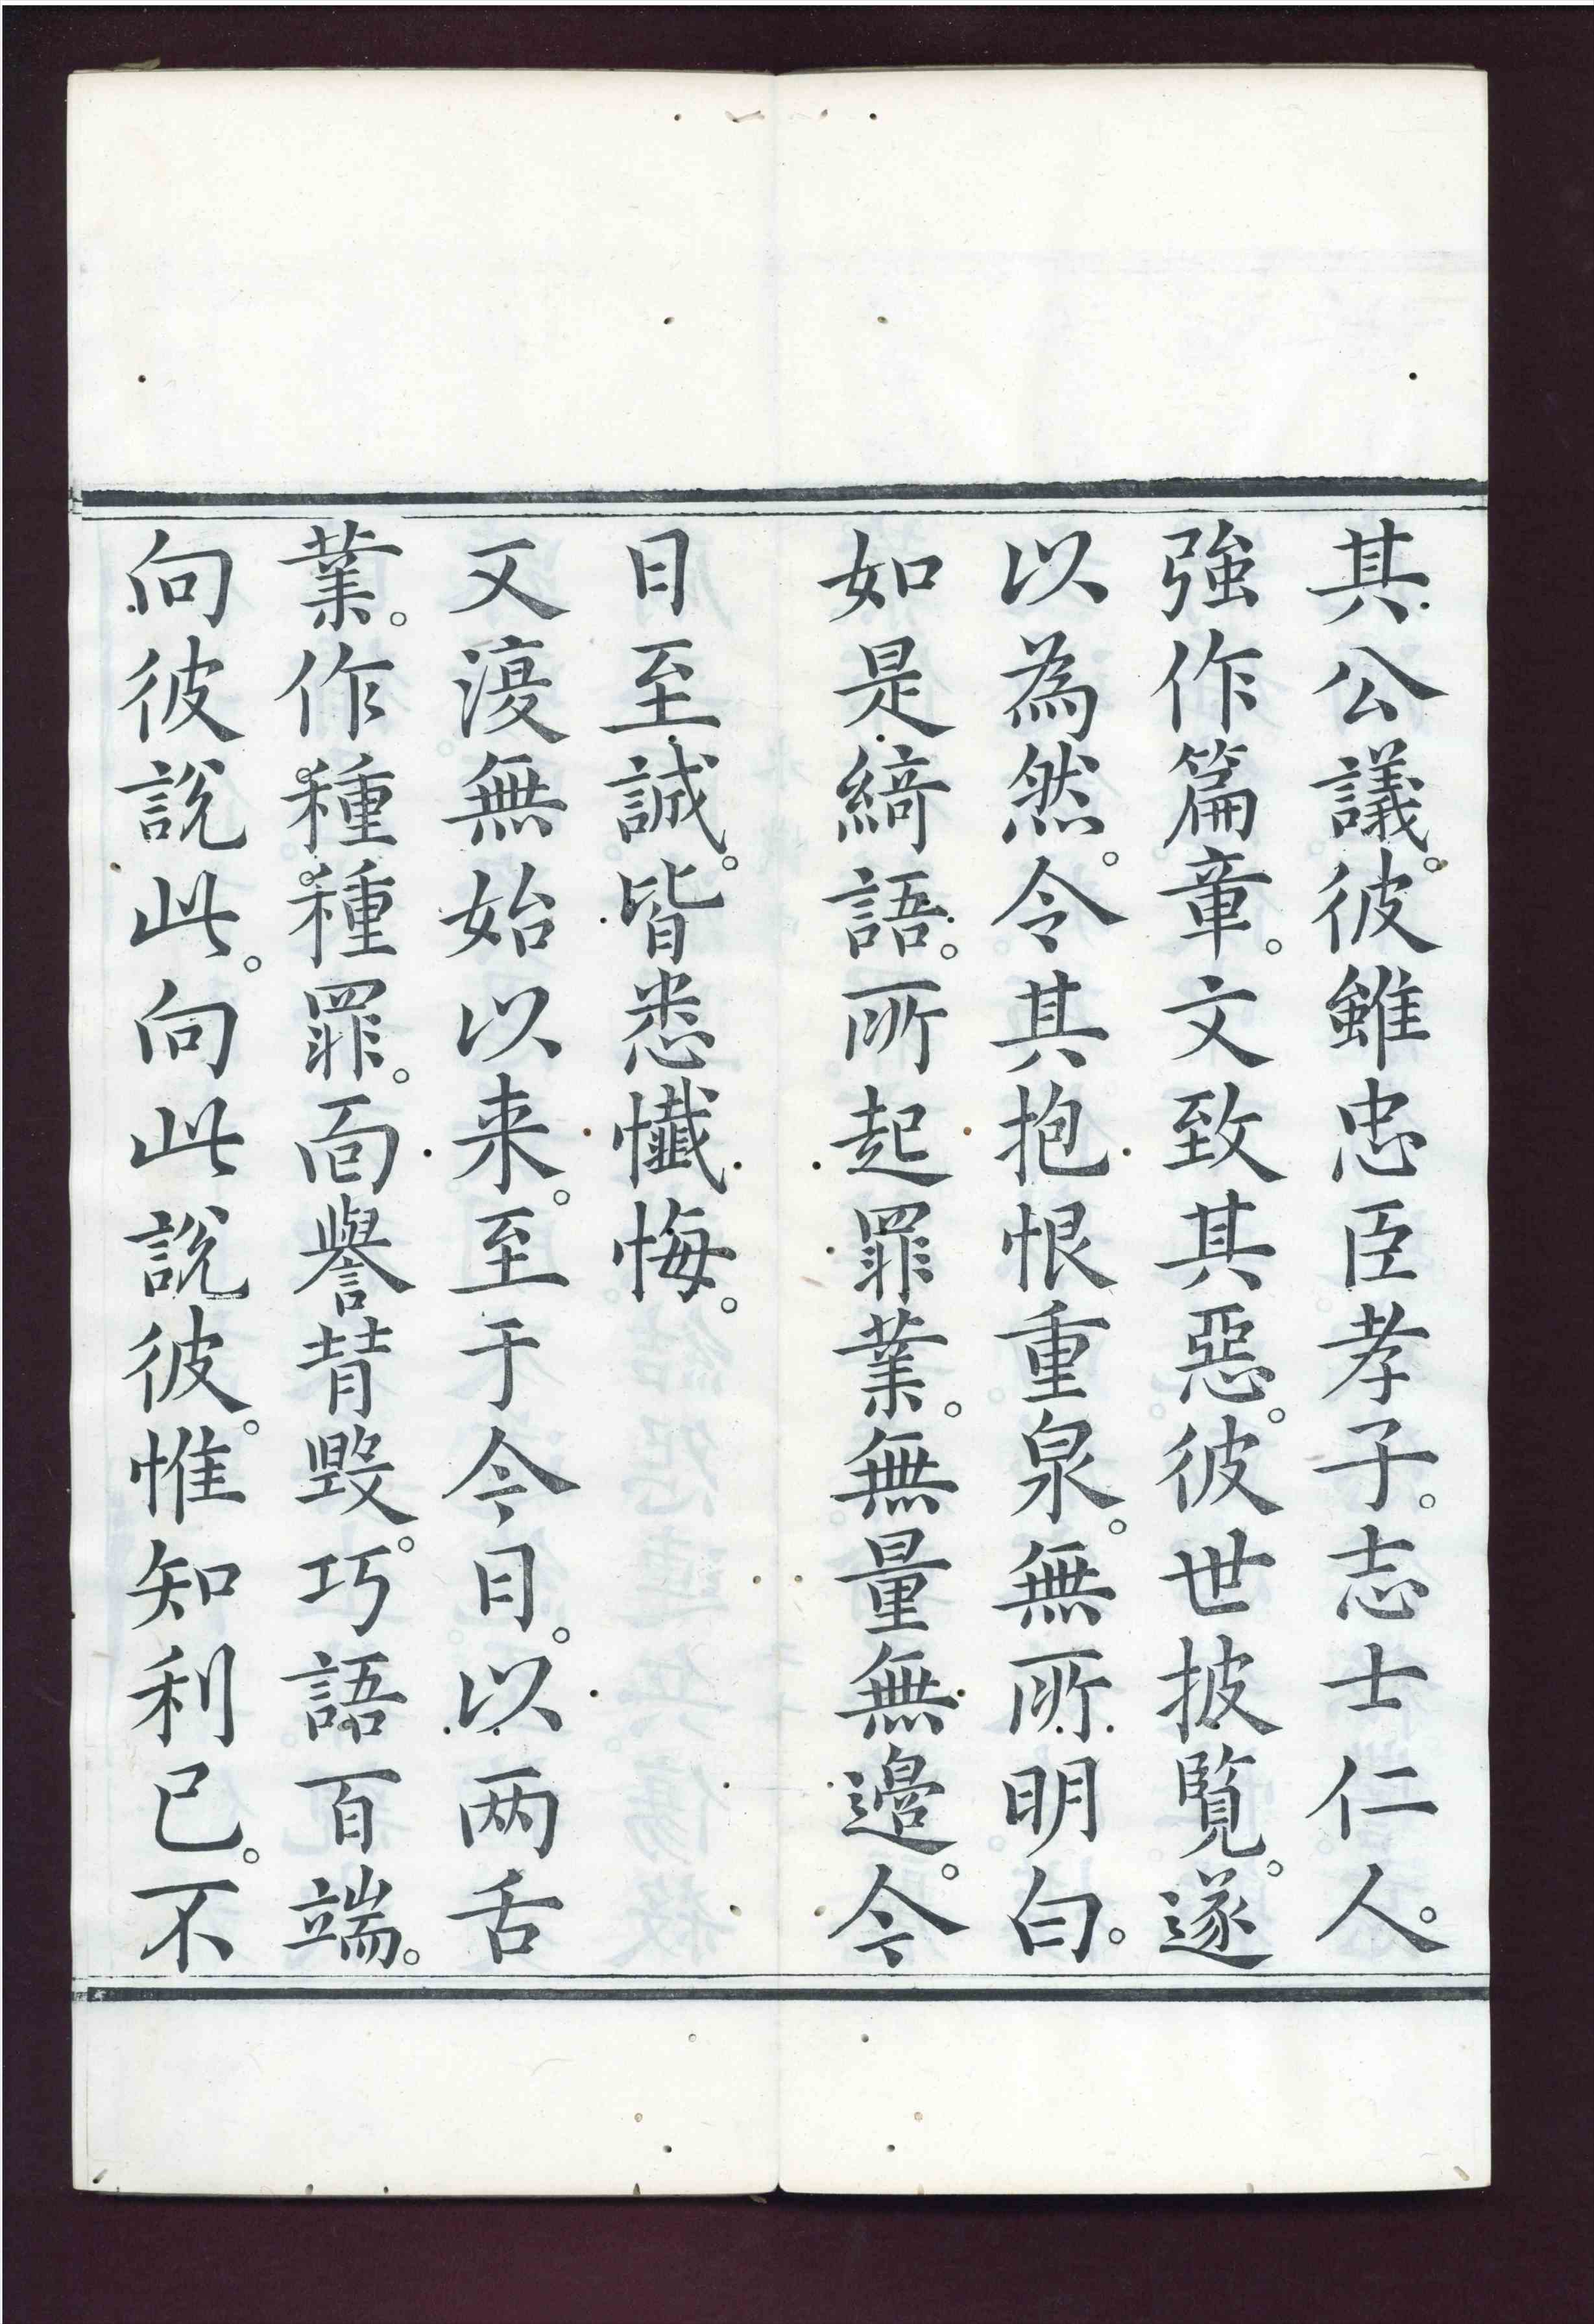 其公議。彼雖忠臣孝子。志士仁人。
強作篇章。文致其惡。彼世披覽。遂
以為然。令其抱恨重泉。無所明白。
如是綺語。所起罪業。無量無邊。今
日至誠。皆悉懺悔。
又復無始以来。至于今日。以两舌
業。作種種罪。面譽背毀。巧語百端。
向彼說此。向此說彼。惟知利己。不